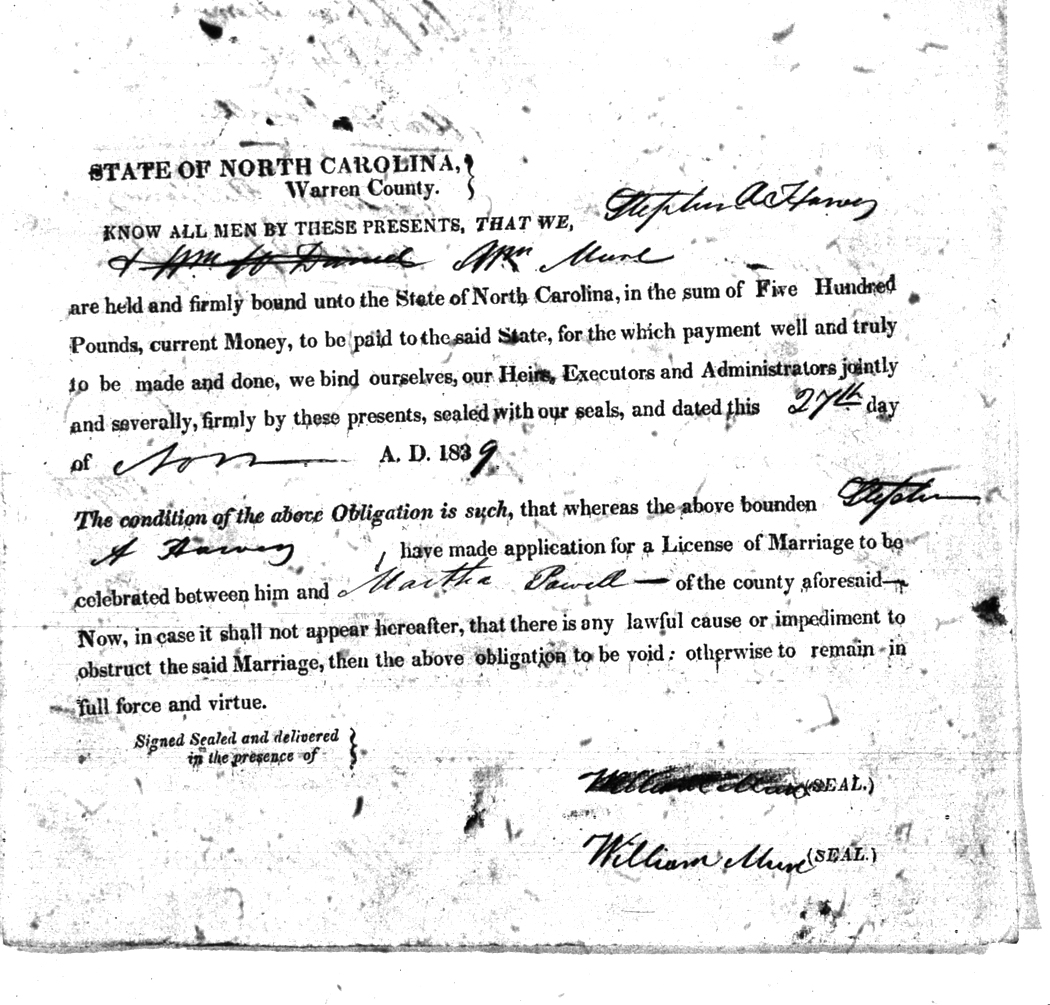 STATE OF NORTH CAROLINA,
Warren County.
KNOW ALL MEN BY THESE PRESENTS, THAT WE, Stephen A Harvey
& Wm W Daniel Wm Muse
are held and firmly bound unto the State of North Carolina, in the sum of Five Hundred
Pounds, current Money, to be paid to the said State, for the which payment well and truly
to be made and done, we bind ourselves, our Heirs, Executors and Administrators jointly
and severally, firmly by these presents, sealed with our seals, and dated this 27th day
of Nov A. D. 1839
The condition of the above Obligation is such, that whereas the above bounden Stephen
A Harvey, have made application for a License of Marriage to be
celebrated between him and Martha Powell — of the county aforesaid—
Now, in case it shall not appear hereafter, that there is any lawful cause or impediment to
obstruct the said Marriage, then the above obligation to be void: otherwise to remain in
full force and virtue.
Signed Sealed and delivered
in the presence of
William (SEAL.)
William Muse (SEAL.)